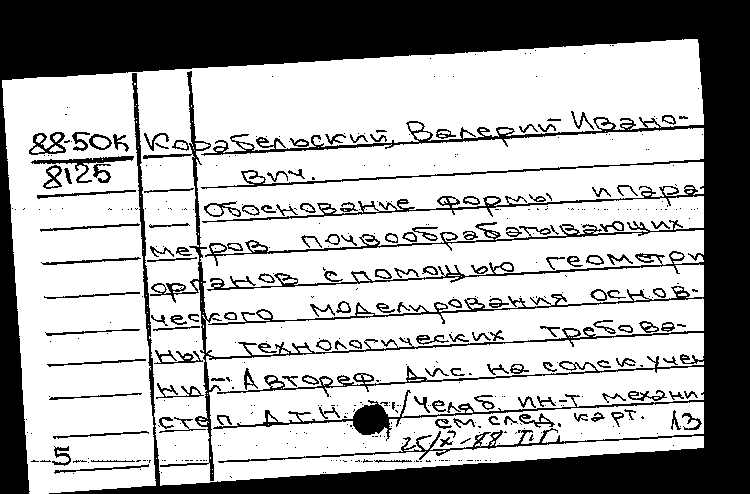 88-50К Корабельский, Валерий Ивано-
8125 вич.
Обоснование формы и пара-
метров почвообрабатывающих
органов с помощью геометри
ческого моделирования основ-
ных технологических требова-
ний: Автореф. дис. на соиск. учен
степ. д.т.н. / Челяб. ин-т механи-
см. след. карт. 13
25/X-88 П.Г.
5